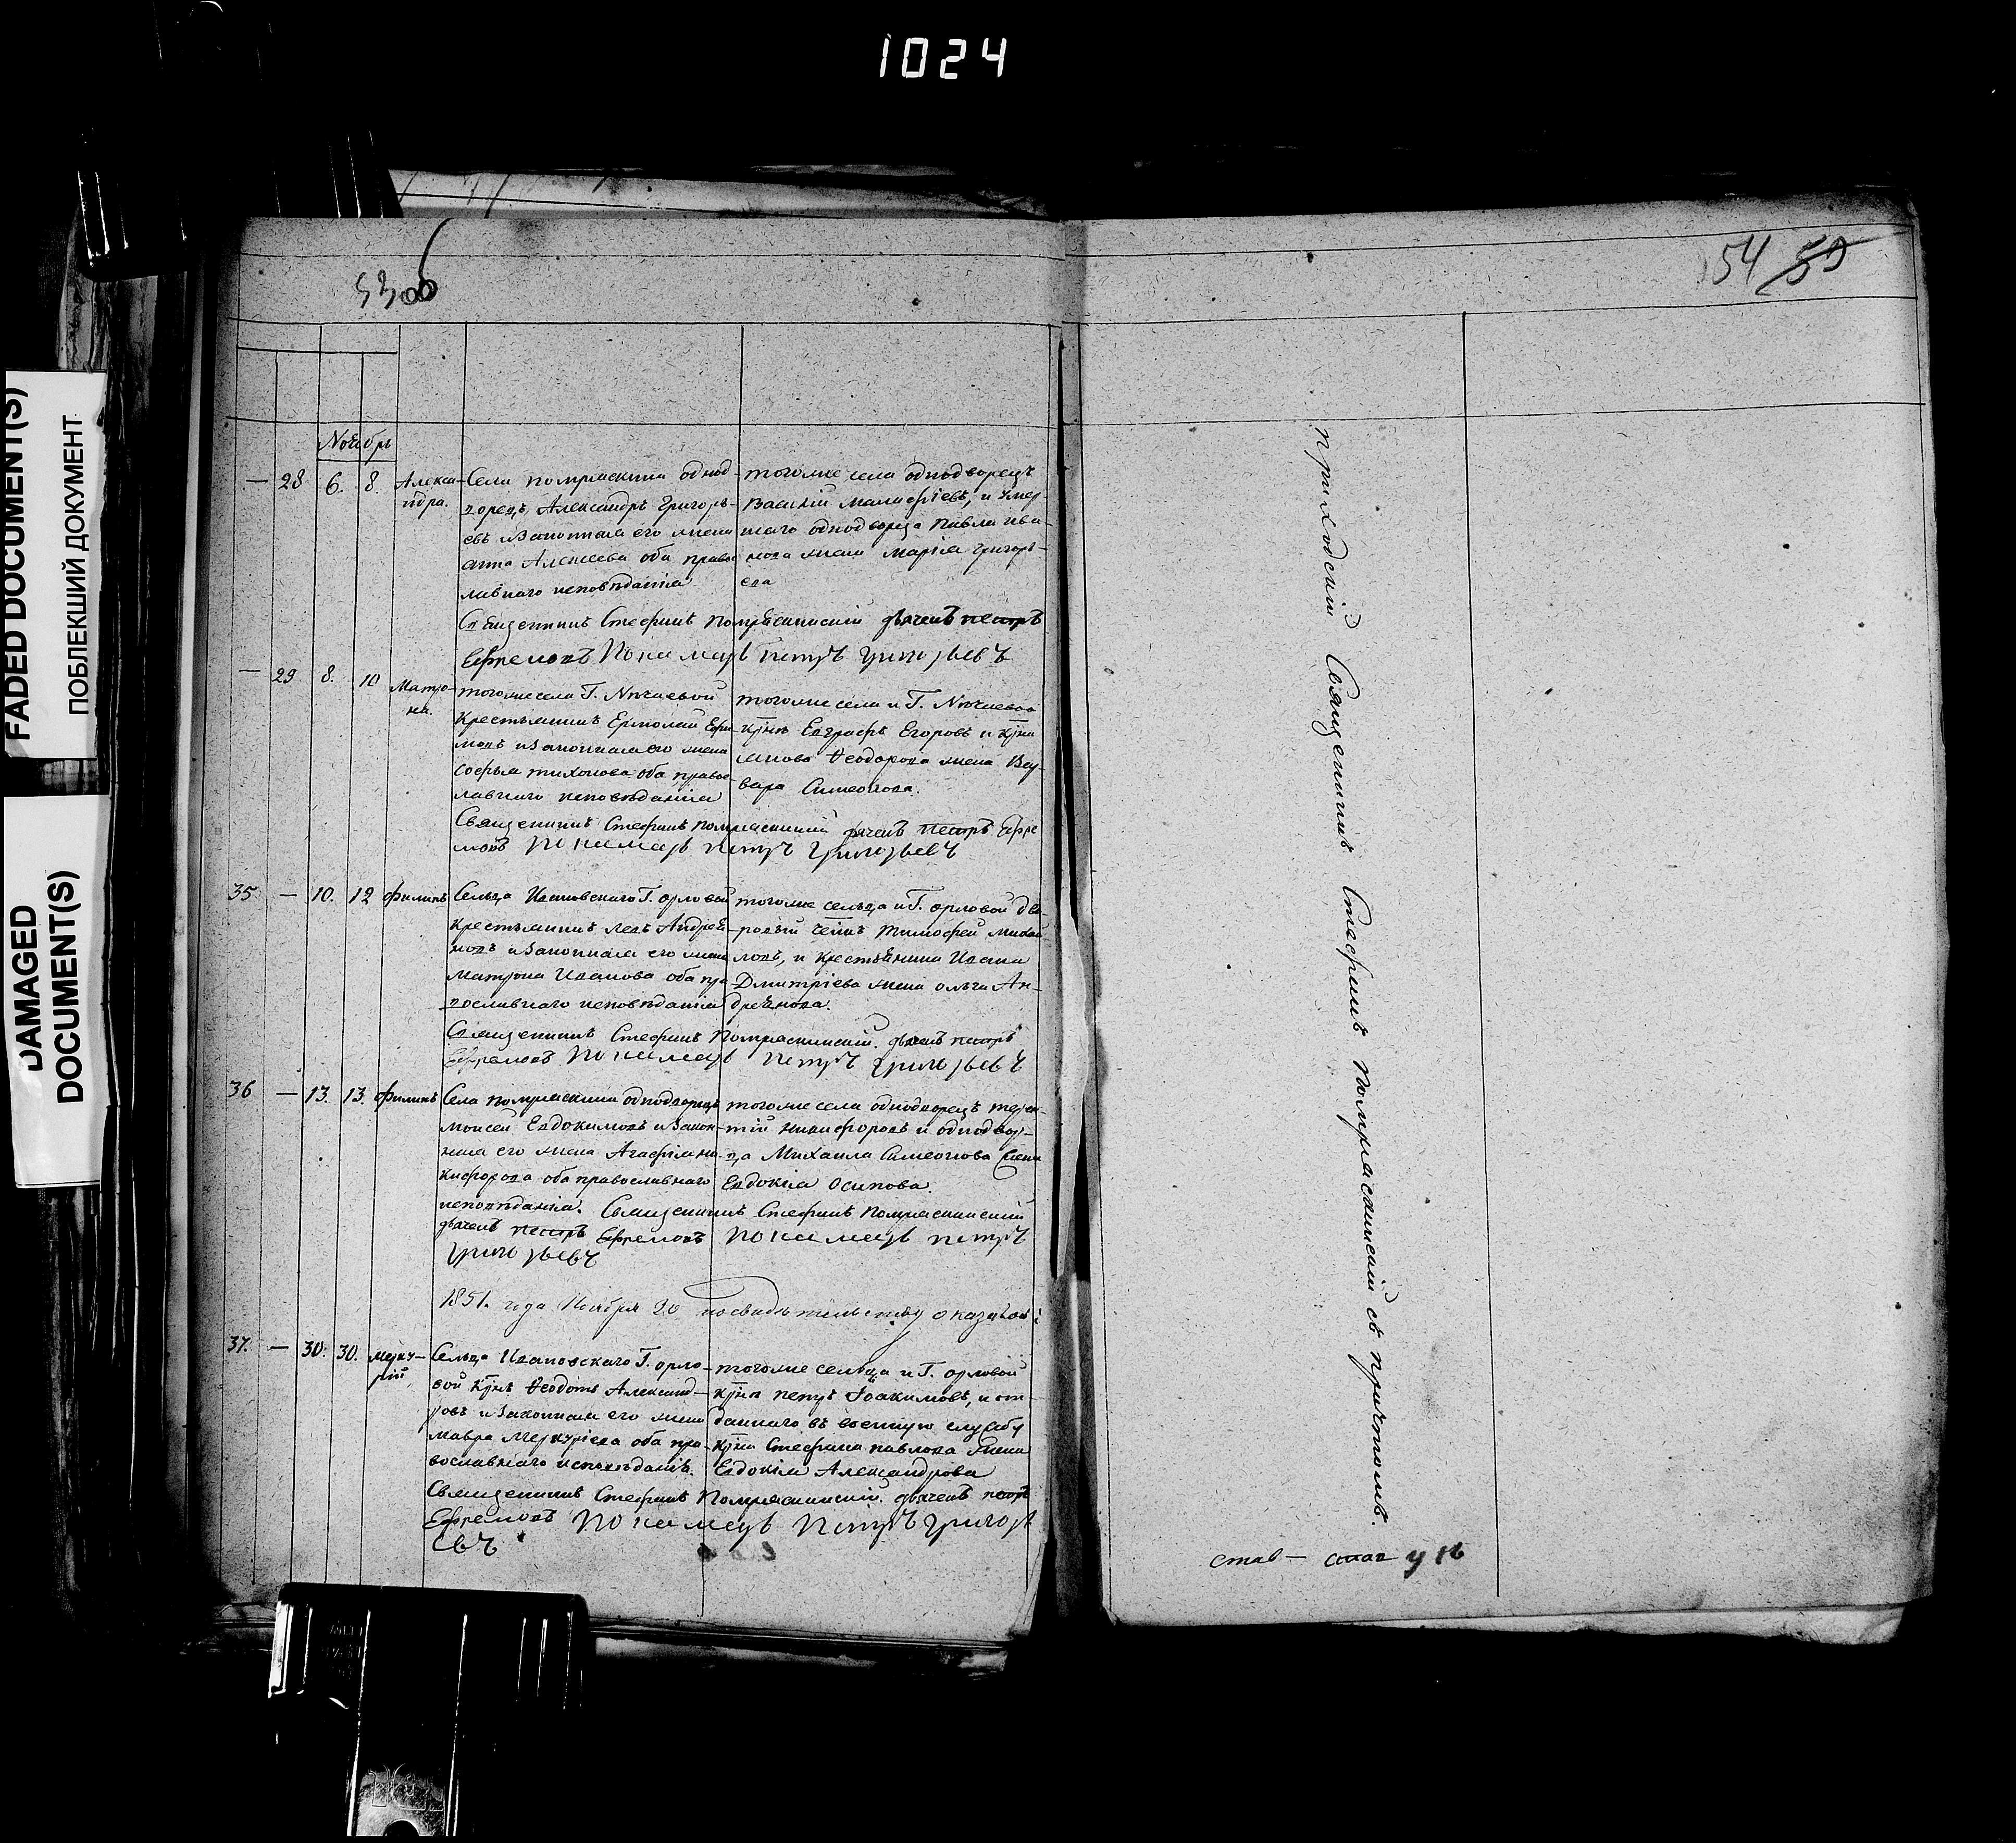 1024
FADED DOCUMENT(S)
ПОБЛЕКШИЙ ДОКУМЕНТ
DAMAGED
DOCUMENT(S)
53 об
54 59
Ноябрь
— 28 6. 8. Алекса-
ндра.
Села Потряскина однод-
ворецъ, Александръ Григорь-
евъ и Законная его жена
анна Алексеева оба право
славнаго исповѣданiя
тогоже села однодворецъ
Василiй Малафѣевъ, и умер-
шаго однодворца Павла Ива-
нова жена Марiя Григорь-
ева
Священникъ Стефанъ Потряскинскiй дьячекъ петръ
Ефремовъ Пономарь петръ григорьевъ
— 29 8. 10 Матро-
на.
тогоже села Г.
Крестьянинъ Ермолай Ефи-
мовъ и Законная его жена
софья тихонова оба право-
славнаго исповѣданiя
тогоже села и Г.
кр҃нъ Евграфъ Егоровъ и кр҃на
Ѳеодорова жена Вар-
вара Симеонова.
Священникъ Стефанъ Потряскинскiй дьячекъ петръ Ефре
мовъ Пономарь петръ григорьевъ
35 — 10. 12 Филипъ
Сельца Ивановскаго Г. орловой
Крестьянинъ левъ Андрея-
новъ и Законная его жена
Матрона Иванова оба пра-
вославнаго исповѣданiя
тогоже сельца и Г. орловой дво-
ровый Тимофей Михай-
ловъ, и крестьянина Ивана
Дмитрiева жена ольга Ан-
дреянова.
Священникъ Стефанъ Потряскинскiй. дьячекъ петръ
Ефремовъ Пономарь петръ григорьевъ
36 — 13. 13. Филипъ
Села Потряскина однодворецъ
Моисей Евдокимовъ и Закон-
ная его жена Агафiя ни-
кифорова оба православнаго
исповѣданiя.
тогоже села однодворецъ терен-
тiй никифоровъ и однодвор-
ца Михаила Симеонова жена
Евдокiя Осипова.
Священникъ Стефанъ Потряскинскiй
дьячекъ петръ Ефремовъ Пономарь петръ
григорьевъ
1851. года Ноября 20 по свидѣтельству оказалось
37. — 30. 30. Мерку-
рiй
Сельца Ивановскаго Г. орло-
вой кр҃нъ Ѳеодотъ Александ-
ровъ и Законная его жена
Мавра Меркурiева оба пра-
вославнаго исповѣданiя.
тогоже сельца и Г. орловой
кр҃нъ петръ Iоакимовъ, и от-
даннаго въ военную службу
кр҃на Стефана павлова жена
Евдокiя Александрова
Священникъ Стефанъ Потряскинскiй. дьячекъ петръ
Ефремовъ Пономарь Петръ григорь
евъ
приходскiй Священникъ Стефанъ Потряскинскiй съ причтомъ.
став —